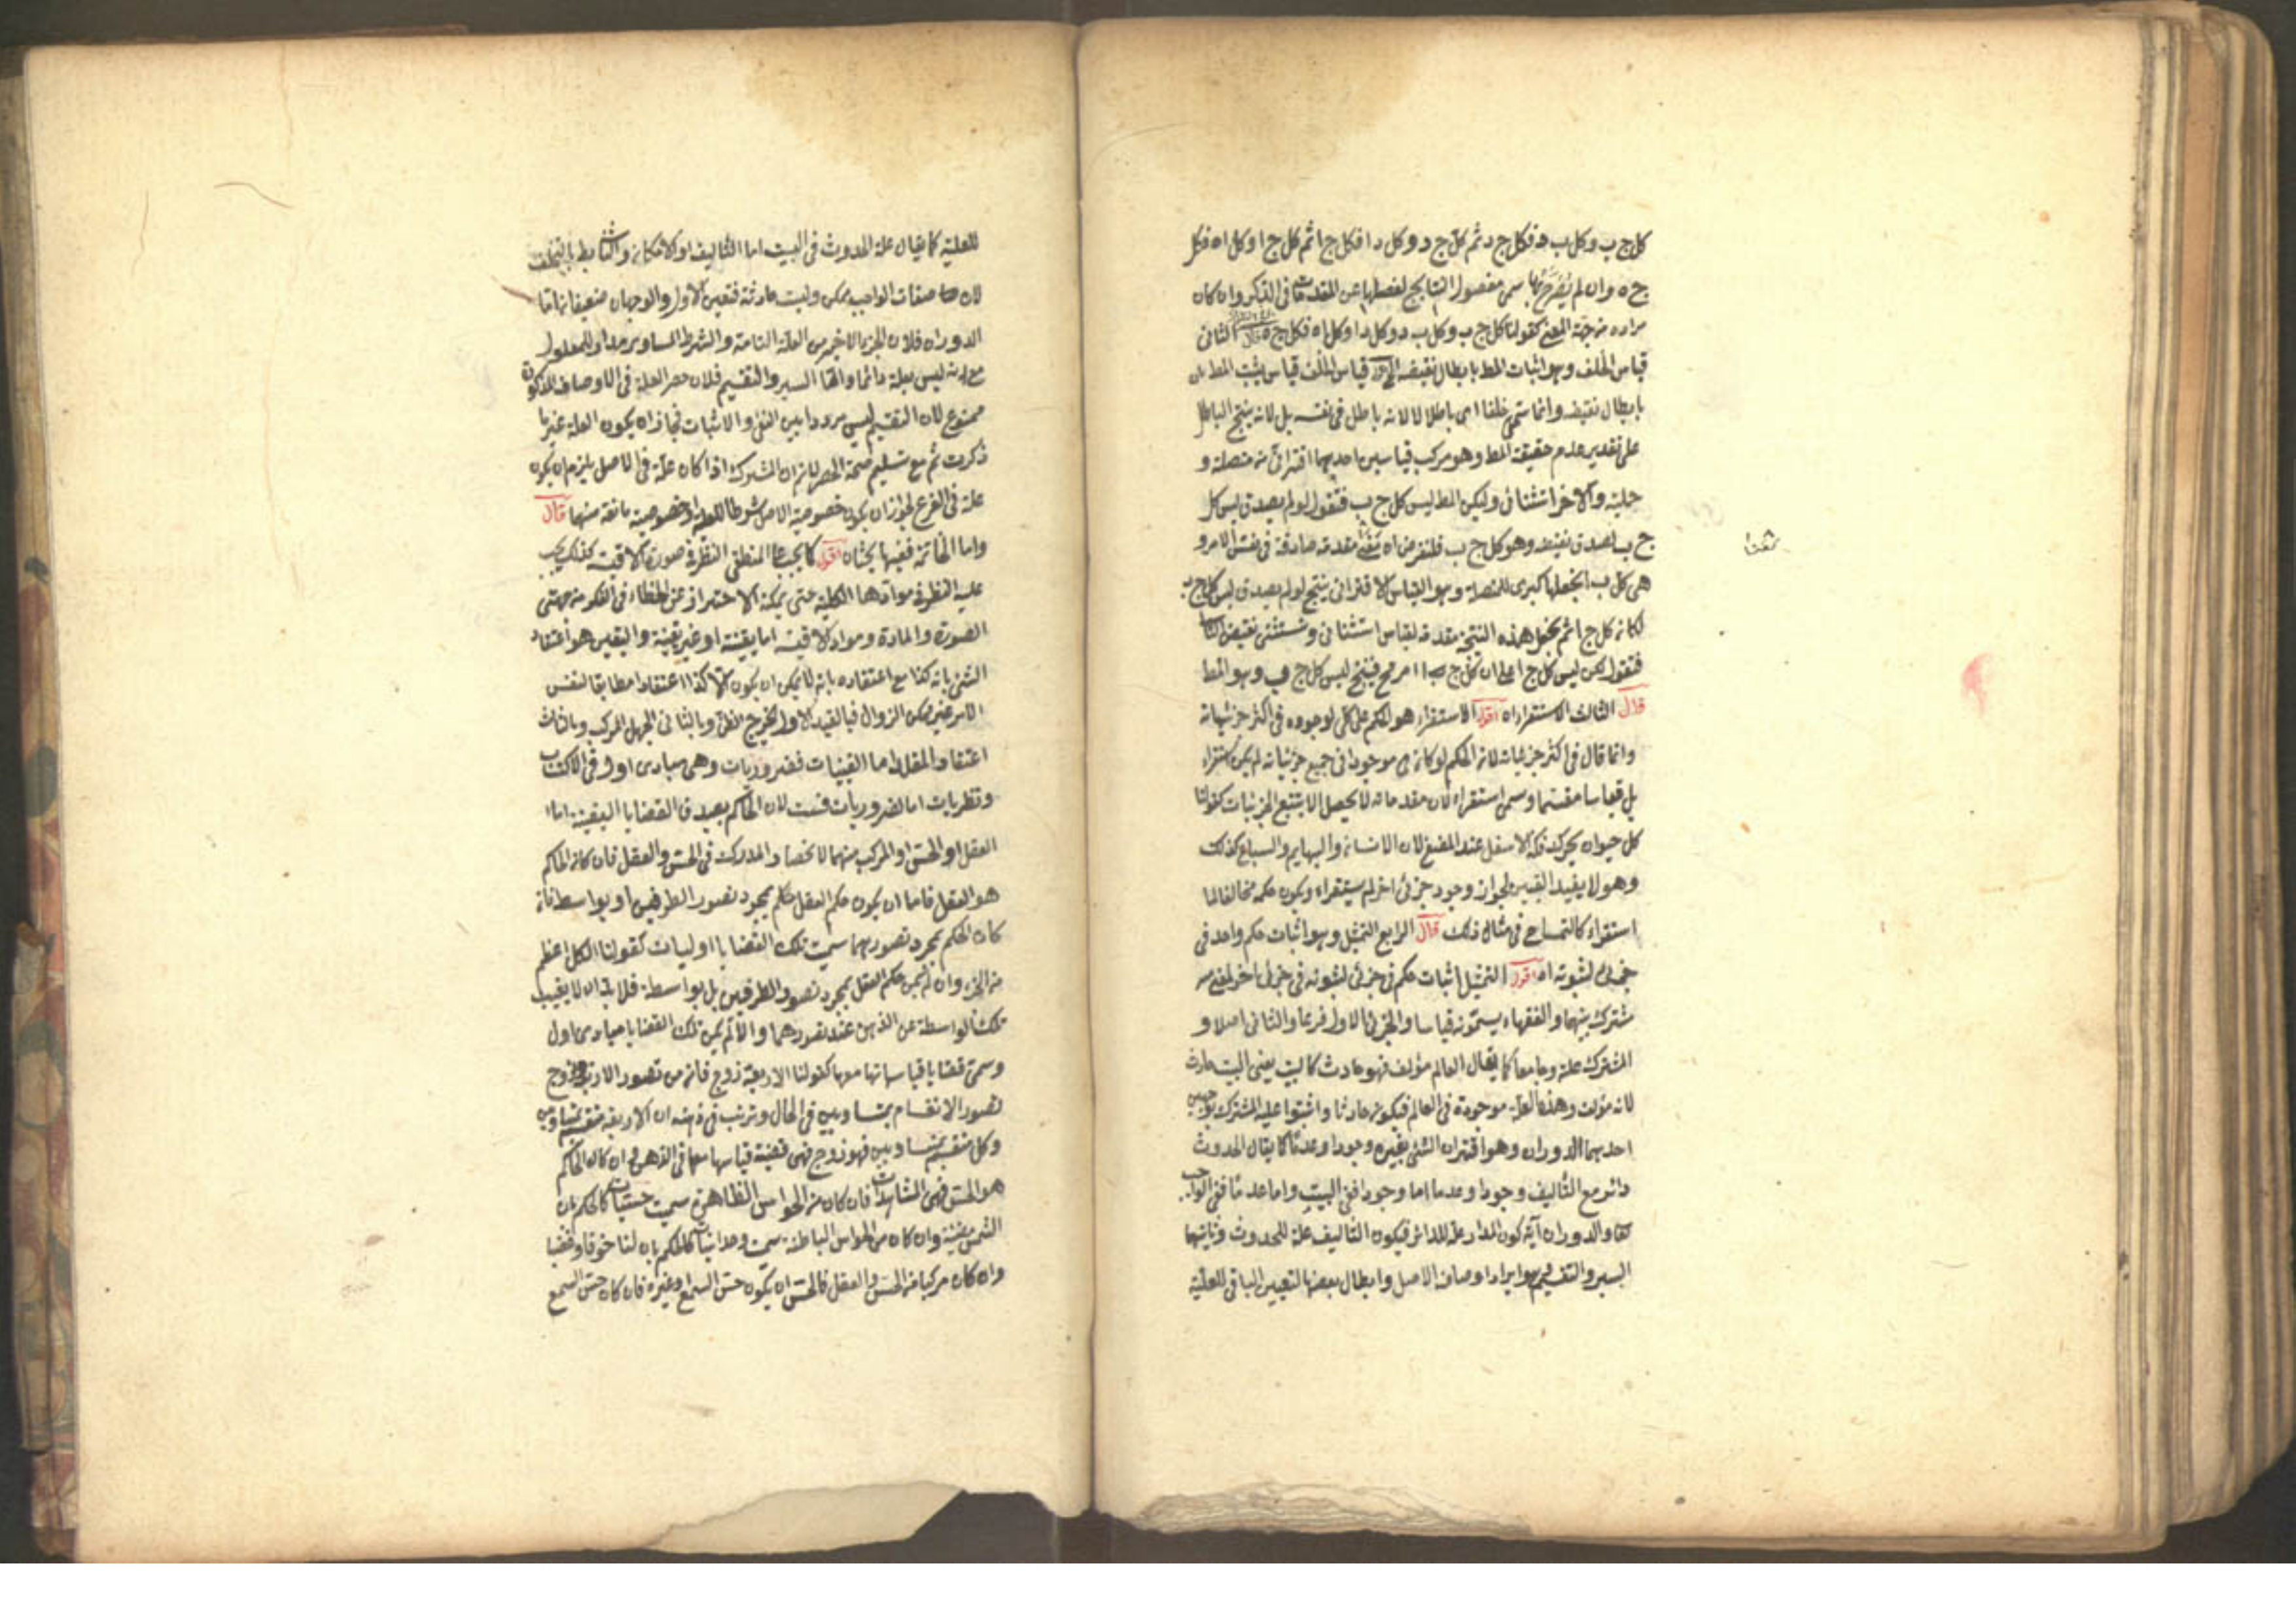 كل ج ب وكل ب د فكل ج د ثم كل ج د وكل د ا فكل ج ا ثم كل ج ا وكل ا ه فكل
ج ه وان لم يصرح بها سمى مفصول النتايج لفصلها عن المقدمات فى الذكر وان كان
مراده من جهة المعنى كقولنا كل ج ب وكل ب د وكل د ا وكل ا ه فكل ج ه قال الثانى
قياس الخلف وهو اثبات المط بابطال نقيضه اقول قياس الخلف قياس يثبت المط
بابطال نقيضه وانما سمى خلفا اى باطلا لا لانه باطل فى نفسه بل لانه ينتج الباطل
على تقدير عدم حقيقة المط وهو مركب قياسين احديهما اقترانى من متصلة و
حملية والاخر استثنائى وليكن المط ليس كل ج ب فتقول لو لم يصدق ليس كل
ج ب لصدق نقيضه وهو كل ج ب فلنفرض ان مقدمة صادقة فى نفس الامر و
هى كل ب ا نجعلها كبرى للمتصلة وهو القياس الاقترانى ينتج لو لم يصدق ليس كل ج ب
لكانه كل ج ا ثم نجعل هذه النتيجة مقدمة لقياس استثنائى ونستثنى نقيض التا
فتقول لكن ليس كل ج ا على ان كل ج ا امر مح فينتج ليس كل ج ب وهو المط
قال الثالث الاستقراء اه اقول الاستقراء هو الحكم على كلى لوجوده فى اكثر جزئياته
وانما قال فى اكثر جزئياته لانه الحكم لو كانه موجودا فى جميع جزئياته لم يكن استقراء
بل قياسا مقسما وسمى استقراء لان مقدماته لا يحصل الا بتتبع الجزئيات كقولنا
كل حيوان يحرك فكه الاسفل عند المضغ لان الانسانه والبهايم والسباع كذلك
وهو لا يفيد اليقين لجواز وجود جزئى اخر لم يستقراء ويكون حكمه مخالفا لما
استقراء كالتمساح فى مثال ذلك قال الرابع التمثيل وهو اثبات حكم واحد فى
جزئى لثبوته اه اقول التمثيل اثبات حكم فى جزئى لثبوته فى جزئى اخر لمعنى
مشترك بينهما والفقهاء يسمونه قياسا والجزئى الاول فرعا والثانى اصلا و
المشترك علة وجامعا كما يقال العالم مؤلف فهو حادث كالبيت يعنى البيت حادث
لانه مؤلف وهذه العلة موجودة فى العالم فيكون حادثا واثبتوا علية المشترك بوجهين
احديهما الدوران وهو اقتران الشئ بغيره وجودا وعدما كما يقال الحدوث
دائر مع التأليف وجودا وعدما اما وجودا ففى البيت واما عدما ففى الواجب
تعا والدوران آية كون المدار علة للدائر فيكون التأليف علة للحدوث وثانيتهما
السبر والتقسيم وهو ايراد اوصاف الاصل وابطال بعضها لتعيين الباقى للعلية
للعلية كما يقال علة الحدوث فى البيت اما التأليف او الامكانه والثا بط بالتخلف
لان صفات الواجب ممكن وليت حادثة فتعين الاول والوجهان ضعيفان اما
الدوران فلان الجزء الاخير من العلة التامة والشرط المساوى مدار للمعلول
مع انه ليس بعلة دائما واما السبر والتقسيم فلان حصر العلة فى الاوصاف المذكورة
ممنوع لان التقسيم ليس مرددا بين النفى والاثبات فجاز ان يكون العلة غير ما
ذكرت ثم مع تسليم صحة الحصر لانم ان المشترك اذا كان علة فى الاصل يلزم ان يكون
علة فى الفرع لجواز ان يكون خصوصية الاصل شرطا للعلة او خصوصية مانعة منها قال
واما الخاتمة ففيها بحثان اقول كما يجب على المنطقى النظر فى صورة الاقيسة كذلك يجب
عليه النظر فى موادها الكلية حتى يمكنه الاحتراز عن الخطاء فى الفكر من جهتى
الصورة والمادة ومواد الاقيسة اما يقينية او غير يقينية واليقين هو اعتقاد
الشئ بانه كذا مع اعتقاده بانه لا يمكن ان يكون الا كذا اعتقادا مطابقا لنفس
الامر غير ممكن الزوال فبالقيد الاول يخرج الظن وبالثانى الجهل المركب وبالثالث
اعتقاد المقلد اما اليقينيات فضروريات وهى مبادى اول فى الاكتساب
ونظريات اما الضروريات فست لان الحاكم بصدق القضايا اليقينية اما
العقل او الحس او المركب منهما لانحصار المدرك فى الحس والعقل فان كانه الحاكم
هو العقل فاما ان يكون حكم العقل حكم بمجرد تصور الطرفين او بواسطة فان
كان الحكم بمجرد تصورهما سميت تلك القضايا اوليات كقولنا الكل اعظم
من الجزء وان لم يكن حكم العقل بمجرد تصور الطرفين بل بواسطة فلا بد ان لا يغيب
تلك الواسطة عن الذهن عند تصورهما والا لم يكن تلك القضايا مبادى اول
وسمى قضايا قياساتها معها كقولنا الاربعة زوج فانه من تصور الاربع والزوج
تصور الانقسام بمتساويين فى الحال وترتب فى ذهنه ان الاربعة منقسم بمتساويين
وكل منقسم بمتساويين فهو زوج فهى قضية قياسها معها فى الذهن وان كان الحاكم
هو الحس فهى المشاهدات فان كان من الحواس الظاهرة سميت حسيات كالحكم بان
الشمس مضيئة وان كان من الحواس الباطنة سميت وجدانيات كالحكم بان لنا خوفا وغضبا
وان كان مركبا من الحس والعقل فالحس ان يكون حس السمع او غيره فان كان حس السمع